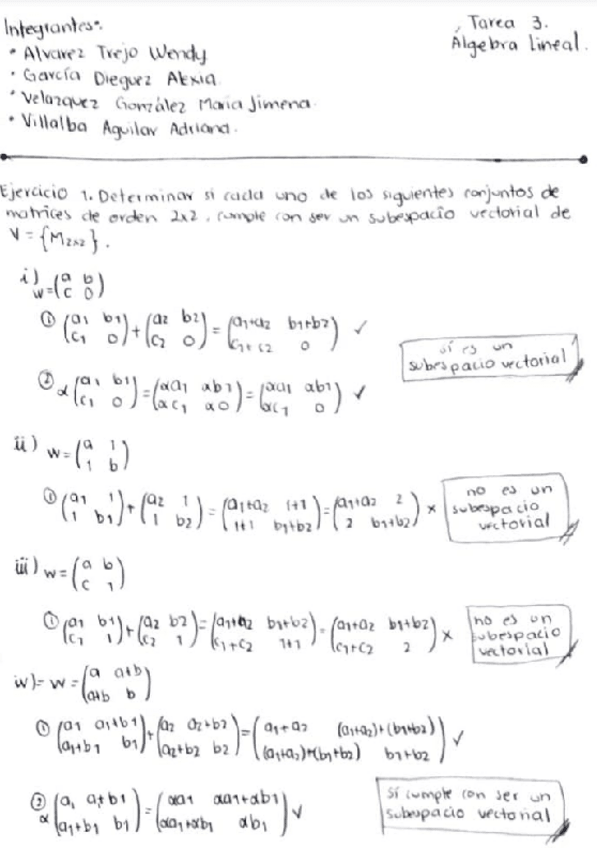 Integrantes:
• Alvarez Trejo Wendy
• García Dieguez Alexia
• Velazquez González María Jimena.
• Villalba Aguilar Adriana.
Tarea 3.
Álgebra Lineal.
Ejercicio 1. Determinar si cada uno de los siguientes conjuntos de
matrices de orden 2x2, cumple con ser un subespacio vectorial de
V = {M2x2}.
i) W = (a b; c 0)
① (a1 b1; c1 0) + (a2 b2; c2 0) = (a1+a2 b1+b2; c1+c2 0) ✓
② α(a1 b1; c1 0) = (αa1 αb1; αc1 α0) = (αa1 αb1; αc1 0) ✓
sí es un
subespacio vectorial
ii) W = (a 1; 1 b)
① (a1 1; 1 b1) + (a2 1; 1 b2) = (a1+a2 1+1; 1+1 b1+b2) = (a1+a2 2; 2 b1+b2) ×
no es un
subespacio
vectorial
iii) W = (a b; c 1)
① (a1 b1; c1 1) + (a2 b2; c2 1) = (a1+a2 b1+b2; c1+c2 1+1) = (a1+a2 b1+b2; c1+c2 2) ×
no es un
subespacio
vectorial
iv) = W = (a a+b; a+b b)
① (a1 a1+b1; a1+b1 b1) + (a2 a2+b2; a2+b2 b2) = (a1+a2 (a1+a2)+(b1+b2); (a1+a2)+(b1+b2) b1+b2) ✓
② α(a1 a+b1; a1+b1 b1) = (αa1 αa1+αb1; αa1+αb1 αb1) ✓
sí cumple con ser un
subespacio vectorial